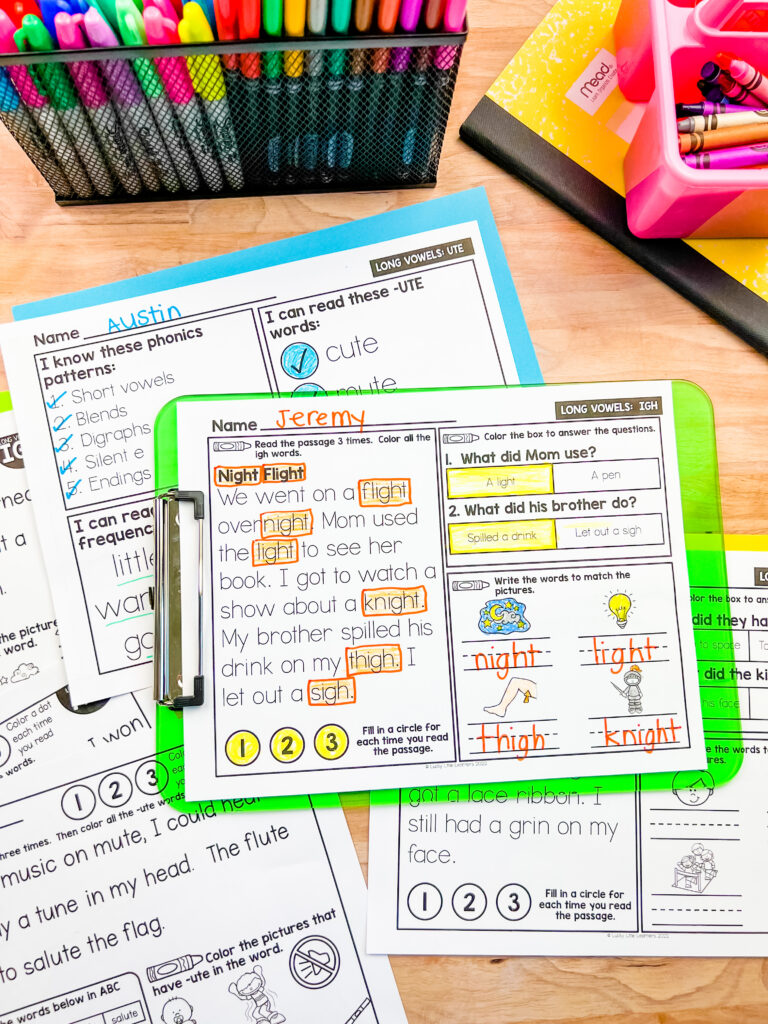 Mead
LONG VOWELS: UTE
Name Austin
I know these phonics
patterns:
1. Short vowels
2. Blends
3. Digraphs
4. Silent e
5. Endings
I can read these -UTE
words:
cute
mute
I can read
frequency
little
LONG VOWELS: IGH
Name Jeremy
Read the passage 3 times. Color all the
igh words.
Night Flight
We went on a flight
overnight. Mom used
the light to see her
book. I got to watch a
show about a knight.
My brother spilled his
drink on my thigh. I
let out a sigh.
1 2 3
Fill in a circle for
each time you read
the passage.
Color the box to answer the questions.
1. What did Mom use?
A light
A pen
2. What did his brother do?
Spilled a drink
Let out a sigh
Write the words to match the
pictures.
night
light
thigh
knight
© Lucky Little Learners 2022
Color a dot
each time
you read
words.
1 2 3
three times. Then color all the -ute words
music on mute, I could hear
a tune in my head. The flute
to salute the flag.
Color the pictures that
have -ute in the word.
the words below in ABC
salute
got a lace ribbon. I
still had a grin on my
face.
1 2 3
Fill in a circle for
each time you read
the passage.
color the box to answer
did they have
to space
did the
his face
the words to